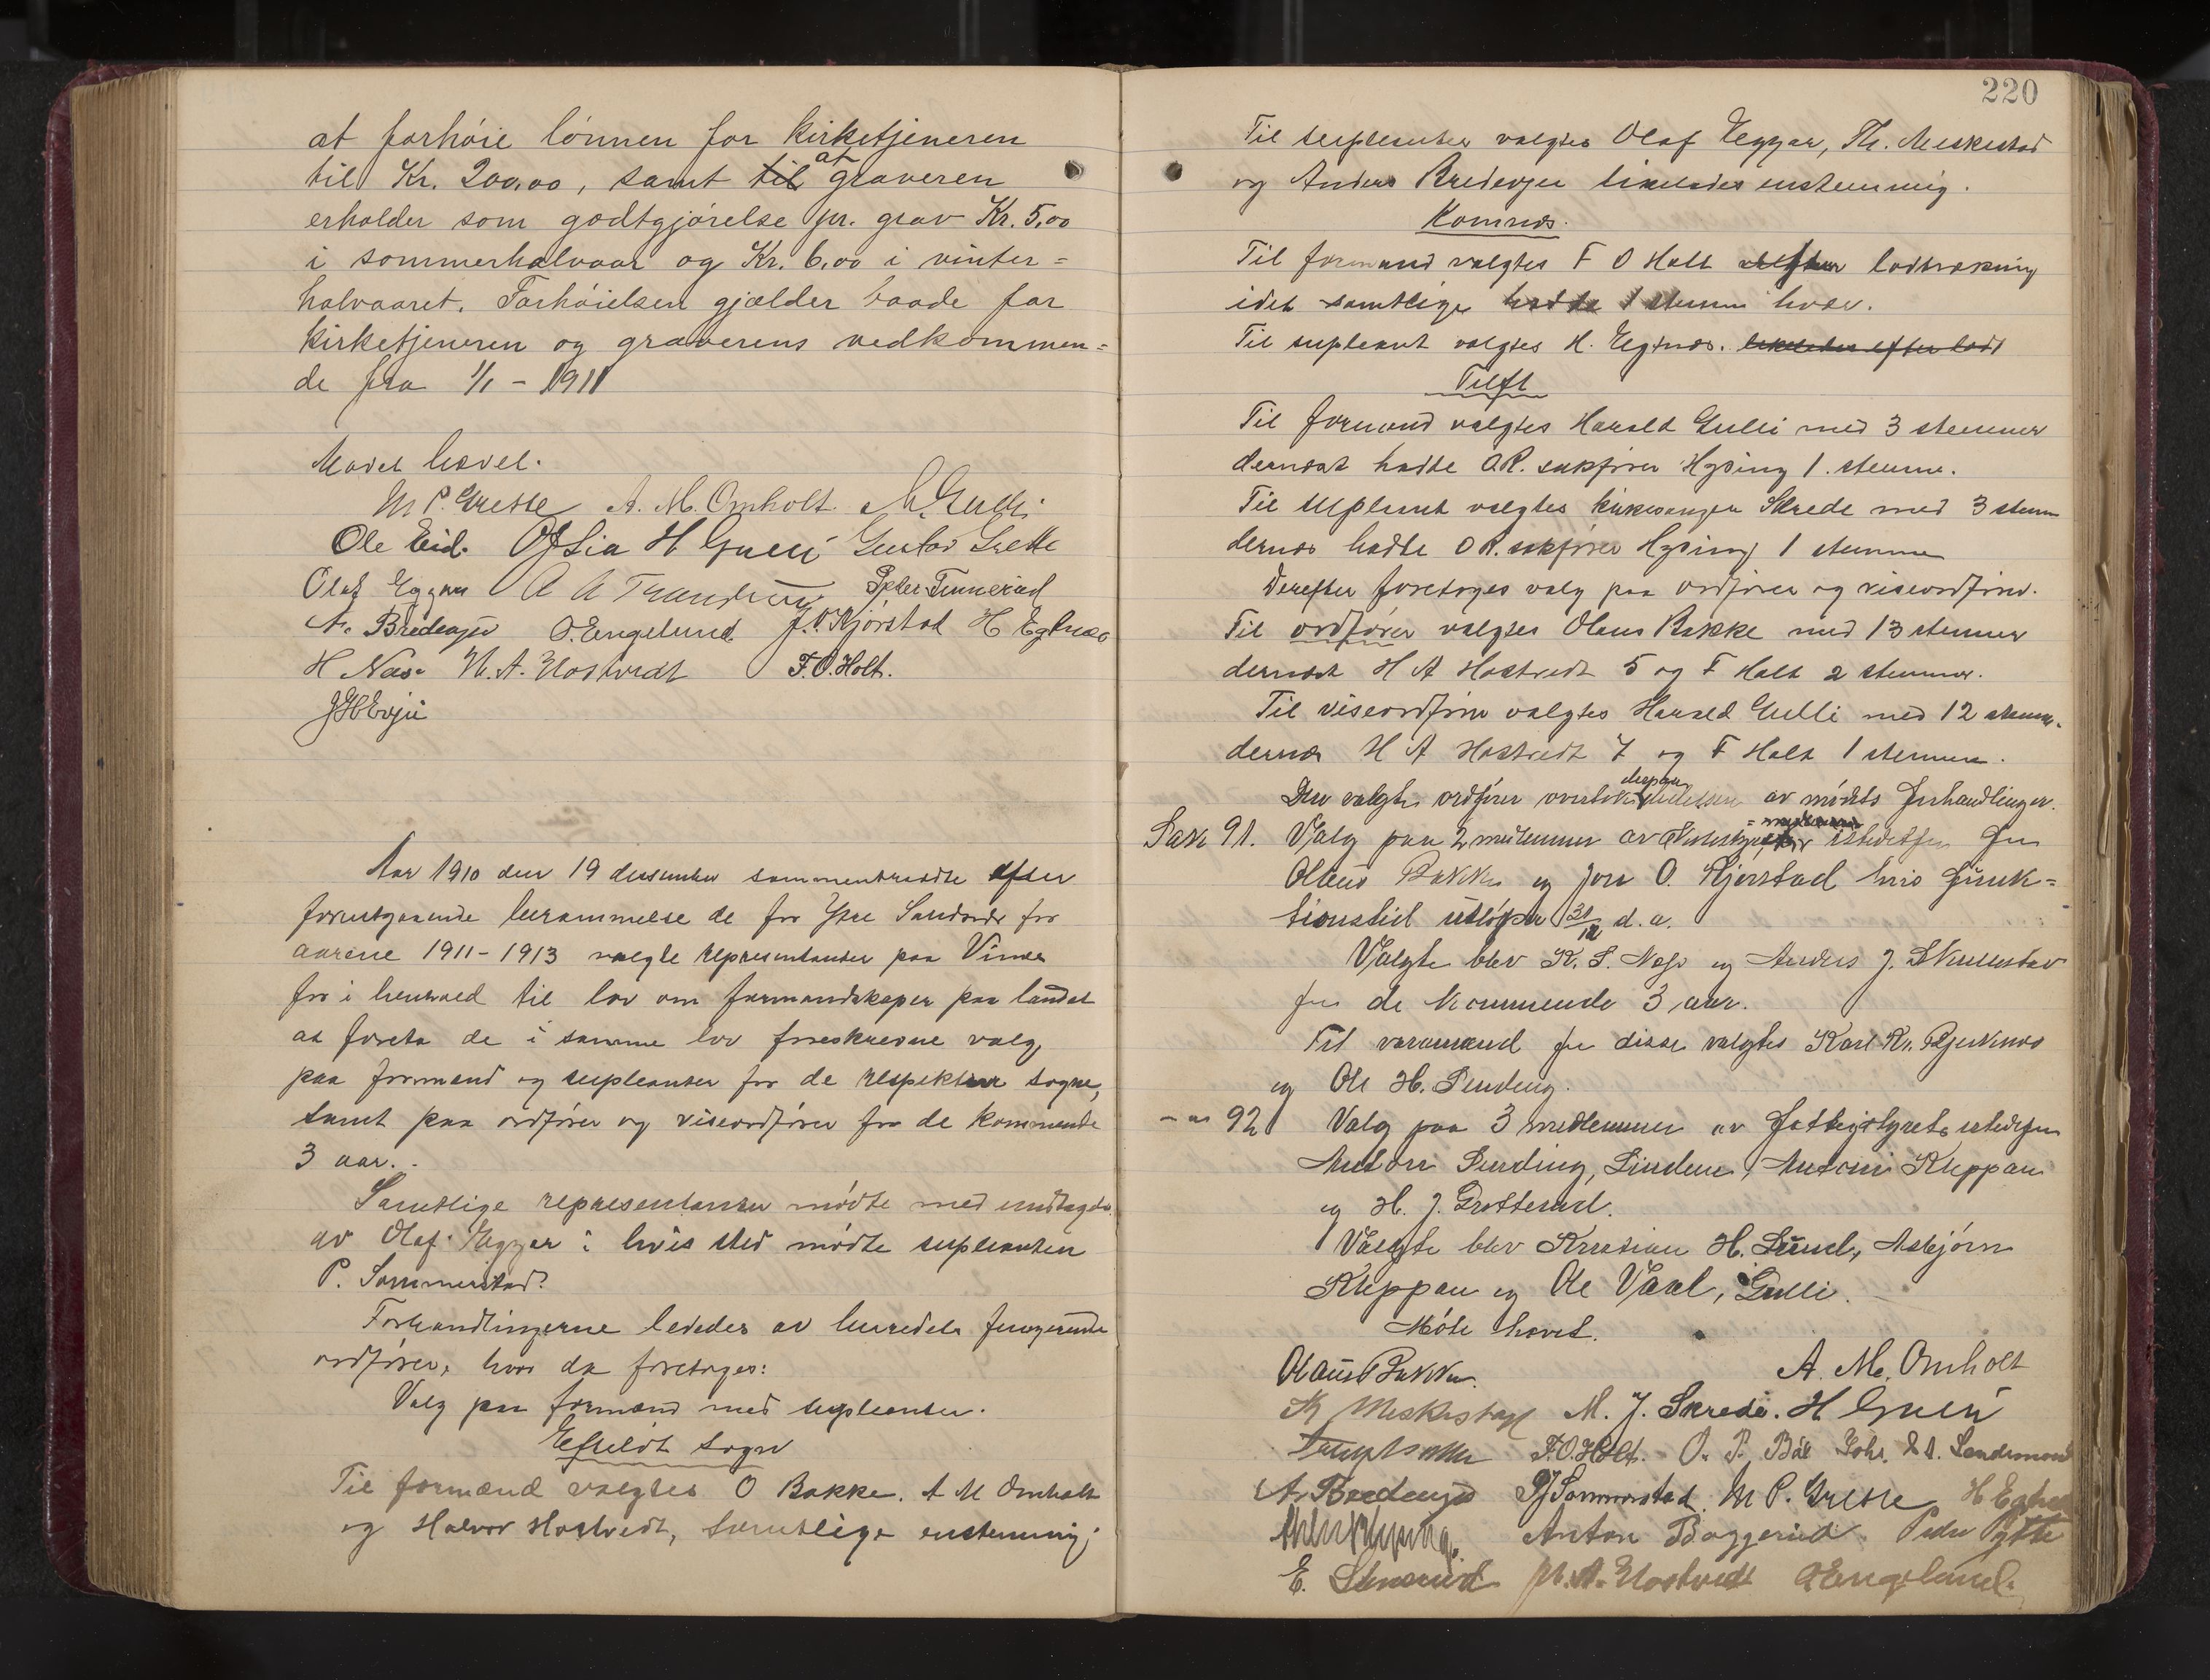 at forhøie lønnen for kirketjeneren
til Kr. 200,00, samt til at graveren
erholder som godtgjørelse pr. grav Kr. 5,00
i sommerhalvaar og Kr. 6,00 i vinter=
halvaaret. Forhøielsen gjælder baade for
kirketjeneren og graverens vedkommen=
de fra 1/1 - 1911
Mødet hævet.
M P. Grette A. M. Omholt.
Ole Eid. O J Lia H Gulli Gustav Grette
Olaf Eggar Peder Tinnerud
A. Bredevjen O. Engelund J. O. Kjørstad H Egtnæs
H Næs. H. A. Hostvedt F. O. Holt.
J H Evju
Aar 1910 den 19 dessember sammentraadte efter
forutgaaende berammelse de for Ytre Sandsvær for
aarene 1911 - 1913 valgte representanter paa Vinæs
for i henhold til lov om formandskaper paa landet
at foreta de i samme lov foreskrevne valg
paa formænd og supleanter for de respektive sogne,
samt paa ordfører og viseordfører for de kommende
3 aar.
Samtlige representanter mødte med undtagelse
av Olaf Eggar i hvis sted mødte supleanten
P. Sommerstad.
Forhandlingerne lededes av herredets fungerende
ordfører, hvor da foretoges:
Valg paa formænd med supleanter.
Efteløt sogn
Til formænd valgtes O Bakke. A M Omholt
og Halvor Hostvedt, samtlige enstemmig;
220
Til supleanter valgtes Olaf Eggar, Th. Meskestad
og Anders Bredevjen likeledes enstemmig.
Komnæs.
Til formand valgtes F O Holt efter lodtrækning
idet samtlige hadde 1 stemme hver.
Til supleant valgtes H. Egtnæs. likeledes efter lodt
Tuft
Til formand valgtes Harald Gulli med 3 stemmer
dernæst hadde O.R. sakfører Hysing 1. stemme.
Til supleant valgtes kirkesanger Skrede med 3 stem
dernæs hadde O R. sakfører Hysing 1 stemme
Derefter foretoges valg paa ordfører og viseordfører.
Til ordfører valgtes Olaus Bakke med 13 stemmer
dernæst H A Hostvedt 5 og F Holt 2 stemmer.
Til viseordfører valgtes Harald Gulli med 12 stemm.
dernæs H A Hostvedt 7 og F Holt 1 stemme.
Den valgte ordfører overtok derpaa ledelsen av mødets forhandlinger.
Sak 91. Valg paa 2 medlemmer av istedetfor
Olaus Bakke og Jon O. Kjørstad hvis funk=
tionstid utløper 31/12 d. a.
Valgte blev K. S. Næss og Anders J. Skullestad
for de kommende 3 aar.
Til varamænd for disse valgtes Karl Kr. Bjerknæs
og Ole H. Sending.
- " - 92 Valg paa 3 medlemmer av fattigstyret istedetfor
Anton Sending, Linderud, Anton Kleppan
og H. J. Grotterud.
Valgte blev Kristian H. Lund, Asbjørn
Kleppan og Ole Varl, Gulli.
Møte hævet.
Olaus Bakke. A. M. Omholt
Th Meskestad M. J. Skrede. H Gulli
F. O. Holt. O. P. Bøe
A. Bredevjen P J Sommerstad. M P. Grette H Egtnæs
Anton Baggerud Peder Pytte
E. Stenerud H. A. Hostvedt O Engelund.